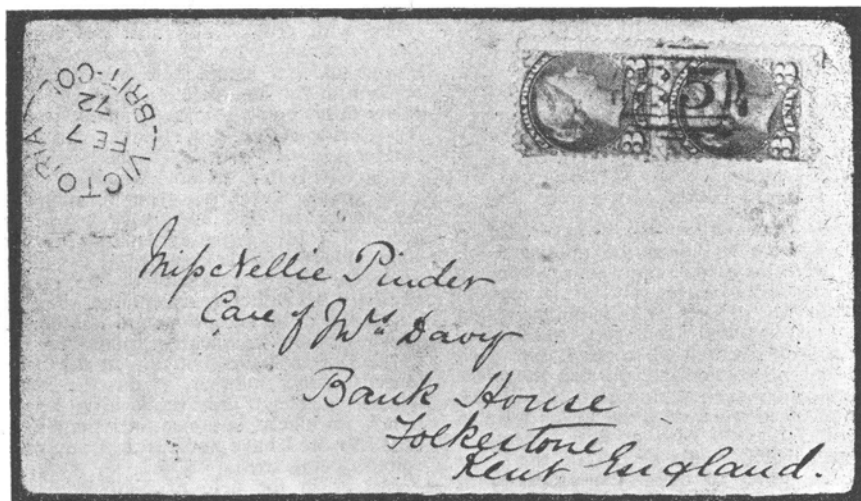 VICTORIA BRIT-COL
FE 7
72
35
3 3
Miss Nellie Pinder
Care of Mrs Davy
Bank House
Folkestone
Kent England.